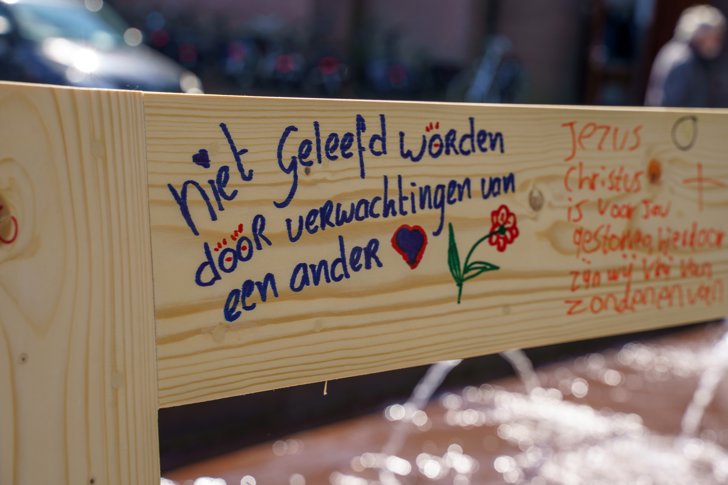 niet Geleefd wörden
döör verwachtingen van
een ander
Jezus
Christus
is voor jou
gestorven hierdoor
zijn wij vrij van
zonden en van